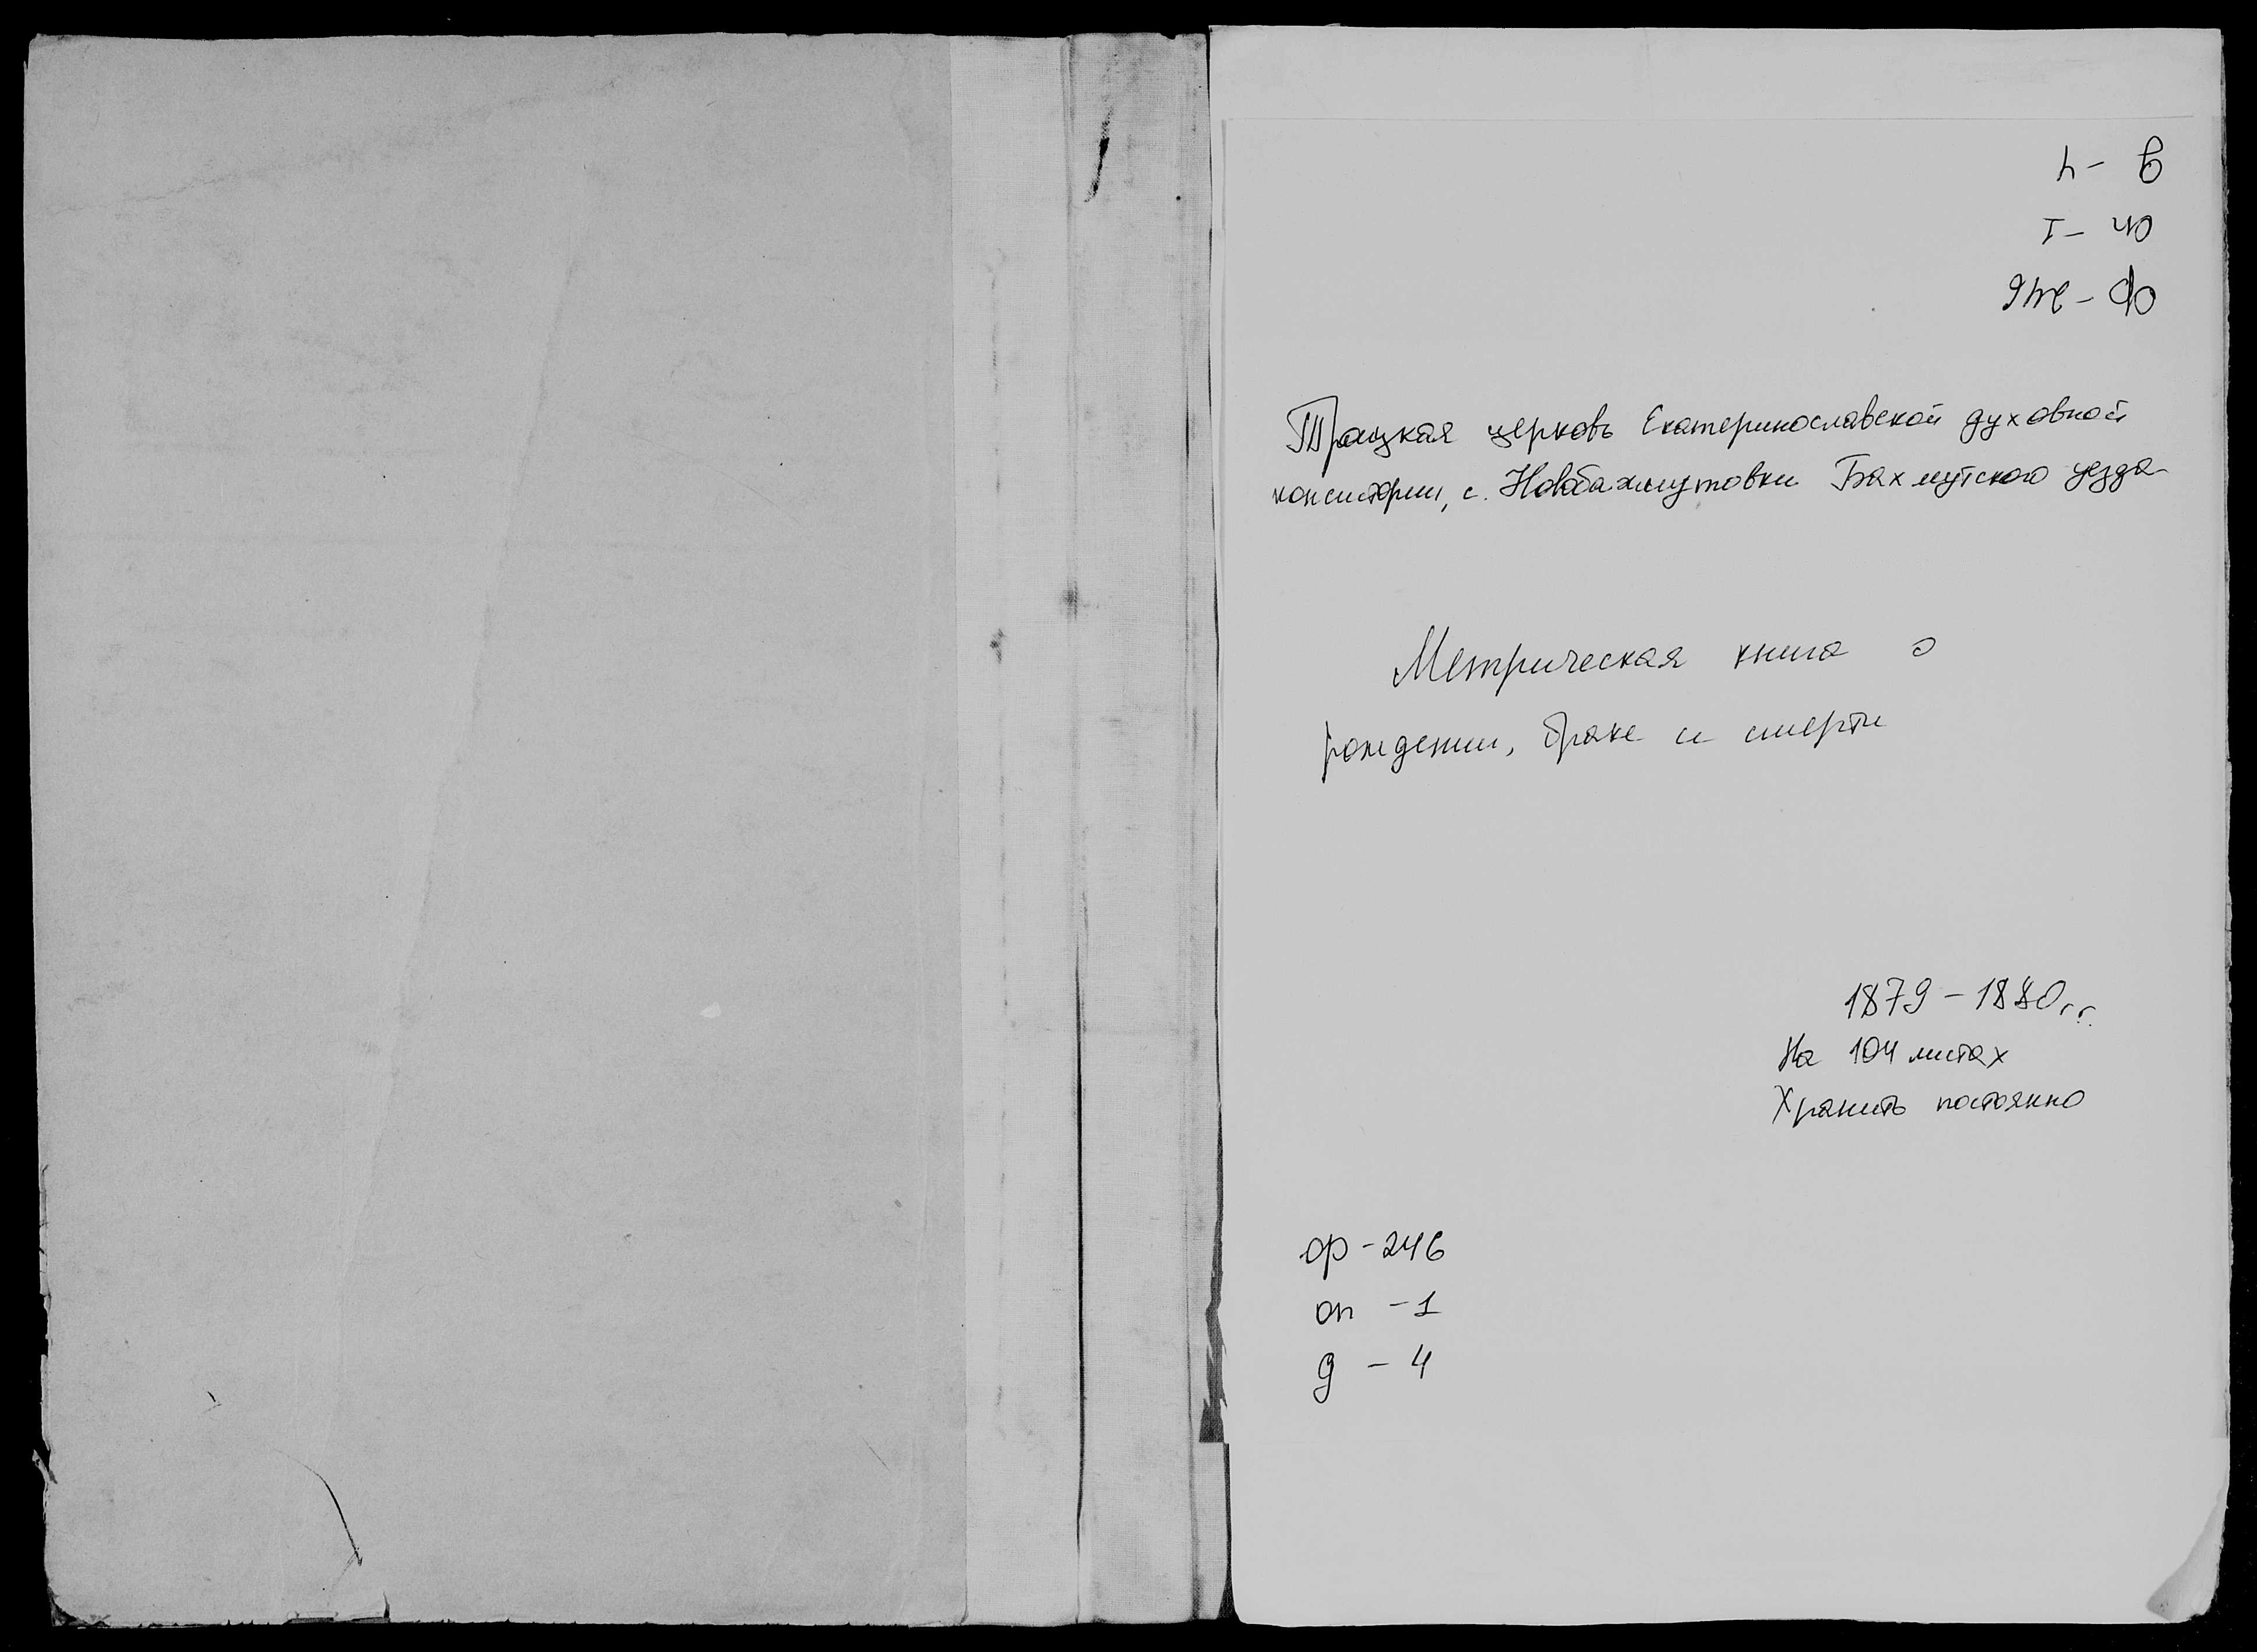 Ф-246
оп-1
д-4
Троицкая церковь Екатеринославской духовной
консистории, с. Новобахмутовки Бахмутского уезда
Метрическая книга о
рождении, браке и смерти
1879-1880гг.
На 104 листах
Хранить постоянно
ф-246
оп -1
д - 4